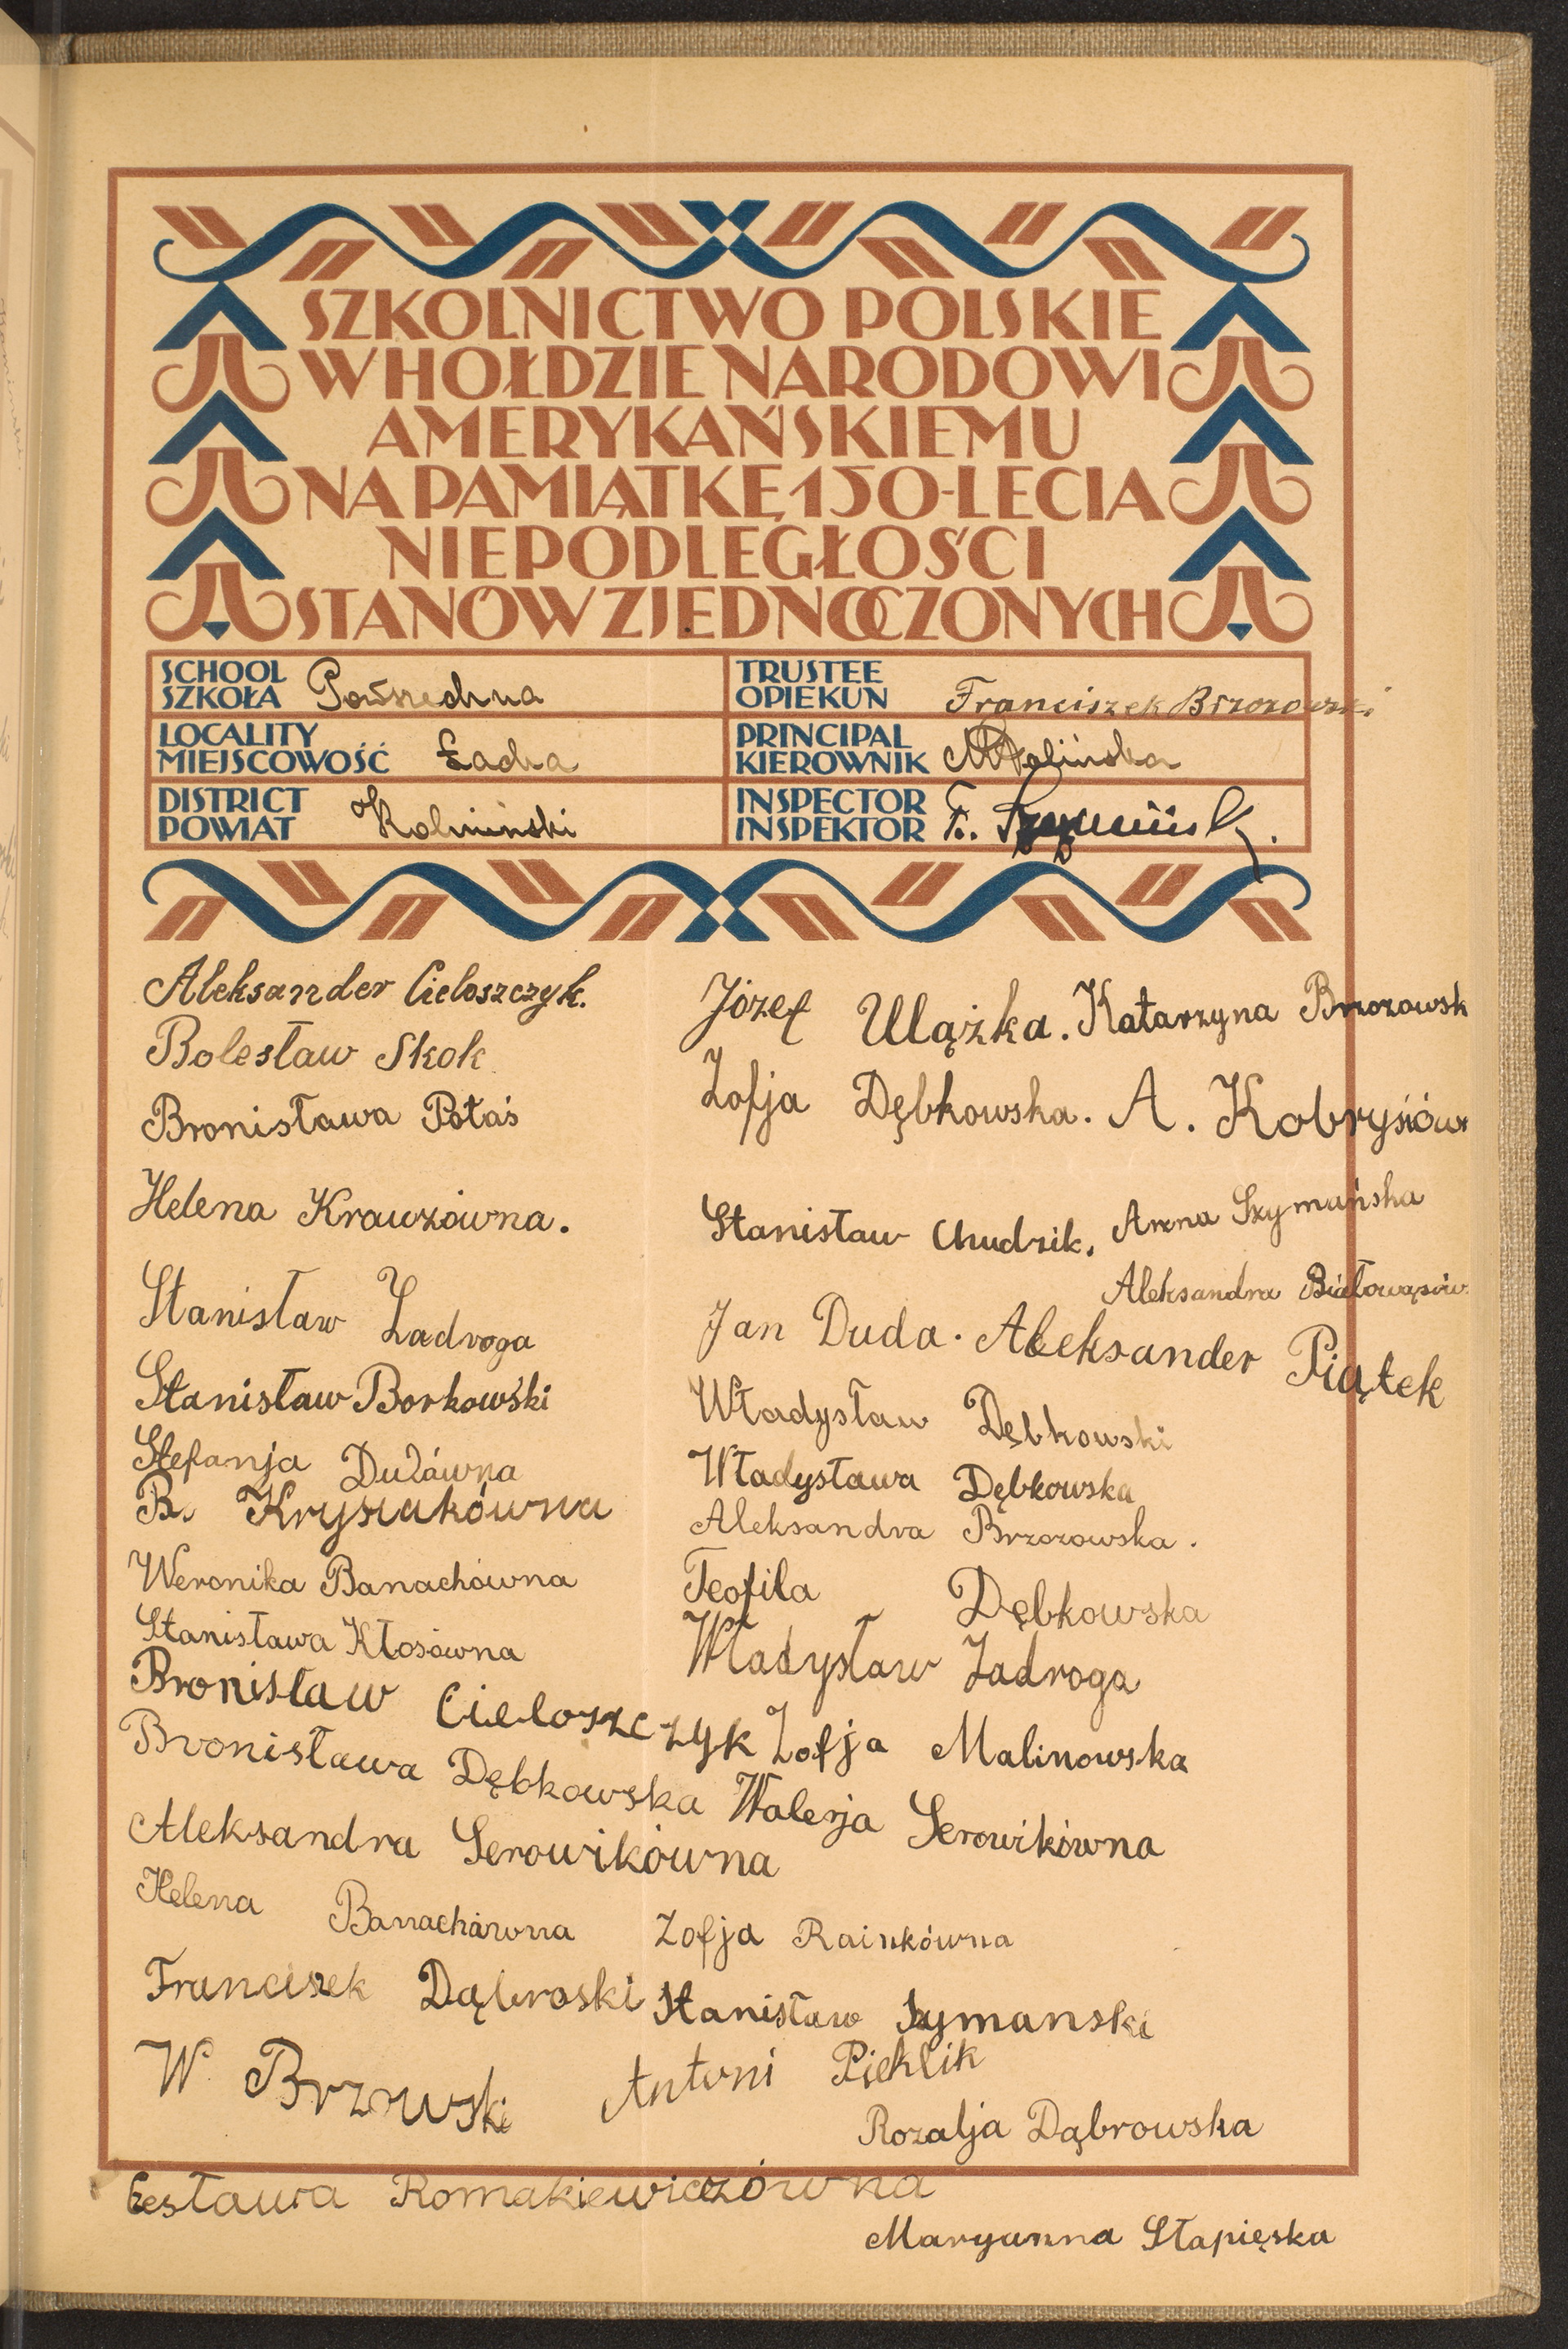 SZKOLNICTWO POLSKIE
W HOŁDZIE NARODOWI
AMERYKAŃSKIEMU
NA PAMIĄTKĘ 150-LECIA
NIEPODLEGŁOŚCI
STANÓW ZJEDNOCZONYCH
SCHOOL
SZKOŁA Powszechna
TRUSTEE
OPIEKUN Franciszek Brzozowski
LOCALITY
MIEJSCOWOŚĆ Łacha
PRINCIPAL
KIEROWNIK
DISTRICT
POWIAT Kolneński
INSPECTOR
INSPEKTOR
Aleksander Cieloszczyk.
Józef Ulążka. Katarzyna Brzozowsk
Bolesław Skok
Zofja Dębkowska. A. Kobrysiów
Bronisława Potaś
Helena Krawzówna.
Stanisław Chudzik, Anna Szymańska
Aleksandra Białowąsów
Stanisław Zadroga
Jan Duda. Aleksander Piątek
Stanisław Borkowski
Władysław Dębkowski
Stefanja Dudówna
Władysława Dębkowska
B. Krysiakówna
Aleksandra Brzozowska.
Weronika Banachówna
Teofila Dębkowska
Stanisława Kłosówna
Władysław Zadroga
Bronisław Cieloszczyk
Zofja Malinowska
Bronisława Dębkowska
Walerja Serowikówna
Aleksandra Serowikówna
Helena Banachówna
Zofja Rainkówna
Franciszek Dąbroski
Stanisław Szymanski
W Brzowski
Antoni Pieklik
Rozalja Dąbrowska
Cesława Romakiewiczówna
Maryanna Słapięska